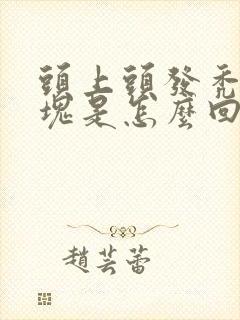 頭上頭發禿
塊是怎麼回
趙芸蕾